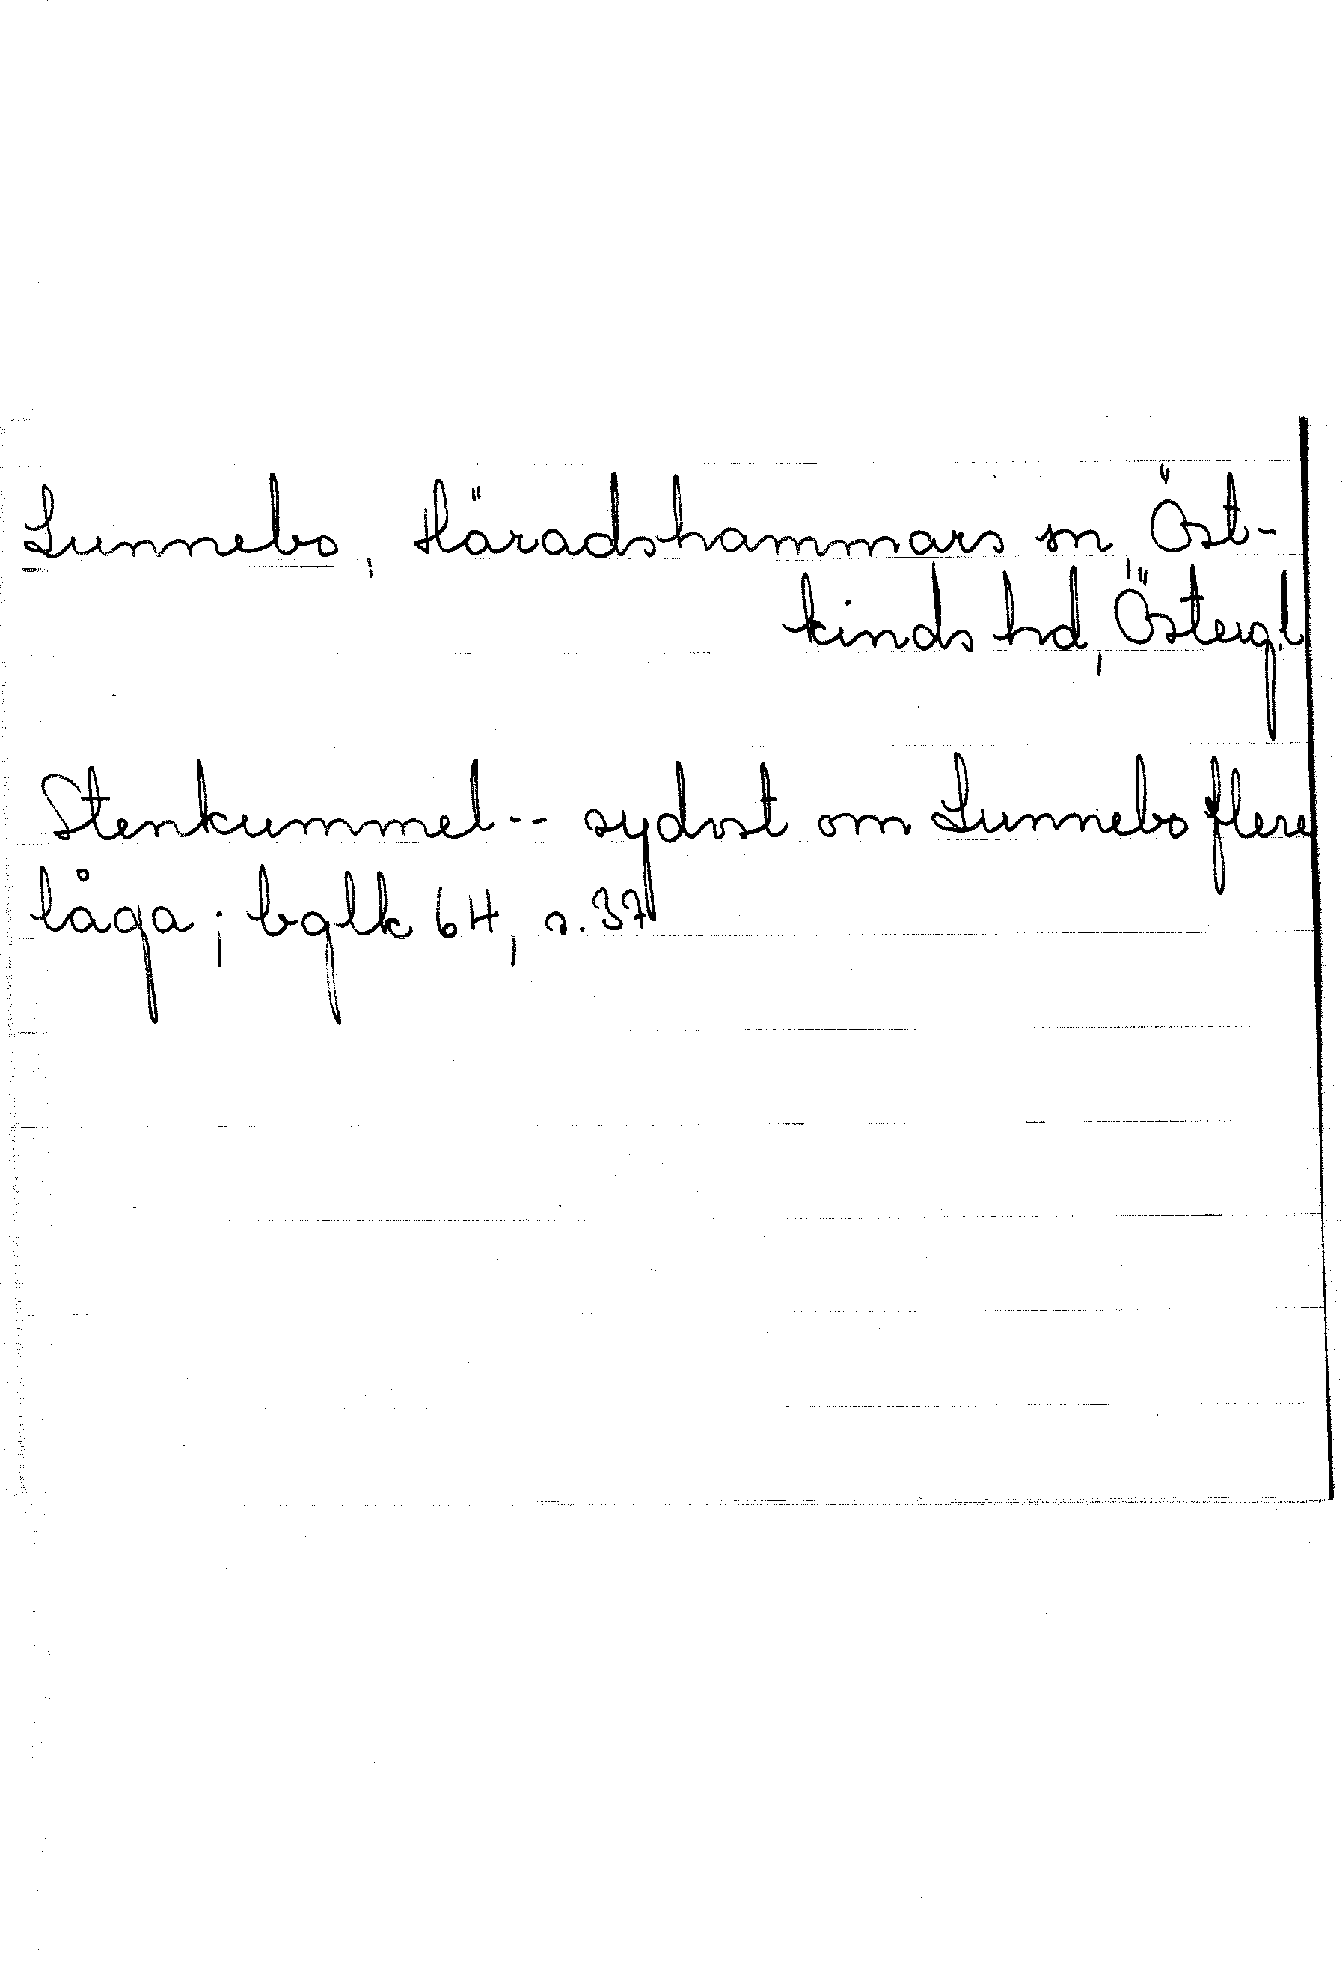 Lunnebo, Häradshammars sn, Öst-
kinds hd, Östergl
Stenkummel -- sydost om Lunnebo flere
låga; bglk 64, s. 37